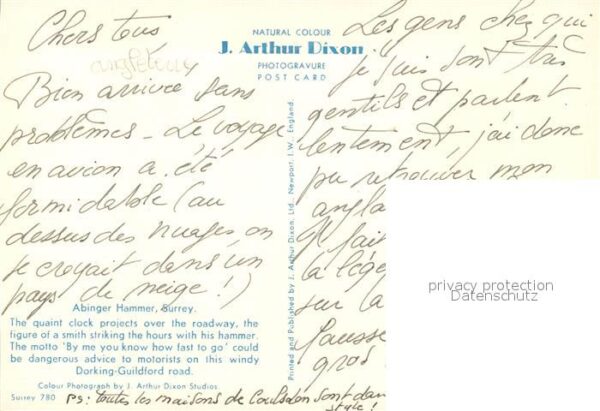 Chers tous
angleterre
Bien arrivée sans
problèmes - Le voyage
en avion a été
formidable (au
dessus des nuages on
se croyait dans un
pays de neige !)
NATURAL COLOUR
J. Arthur Dixon
PHOTOGRAVURE
POST CARD
Les gens chez qui
je suis sont très
gentils et parlent
lentement, j'ai donc
pu retrouver mon
angla
Il fait
la lége
sur la
fausse
gros
Printed and Published by J. Arthur Dixon, Ltd., Newport, I.W., England.
privacy protection
Datenschutz
Abinger Hammer, Surrey.
The quaint clock projects over the roadway, the
figure of a smith striking the hours with his hammer.
The motto 'By me you know how fast to go' could
be dangerous advice to motorists on this windy
Dorking-Guildford road.
Colour Photograph by J. Arthur Dixon Studios.
Surrey 780
PS: toutes les maisons de Coulsdon sont dans
style !